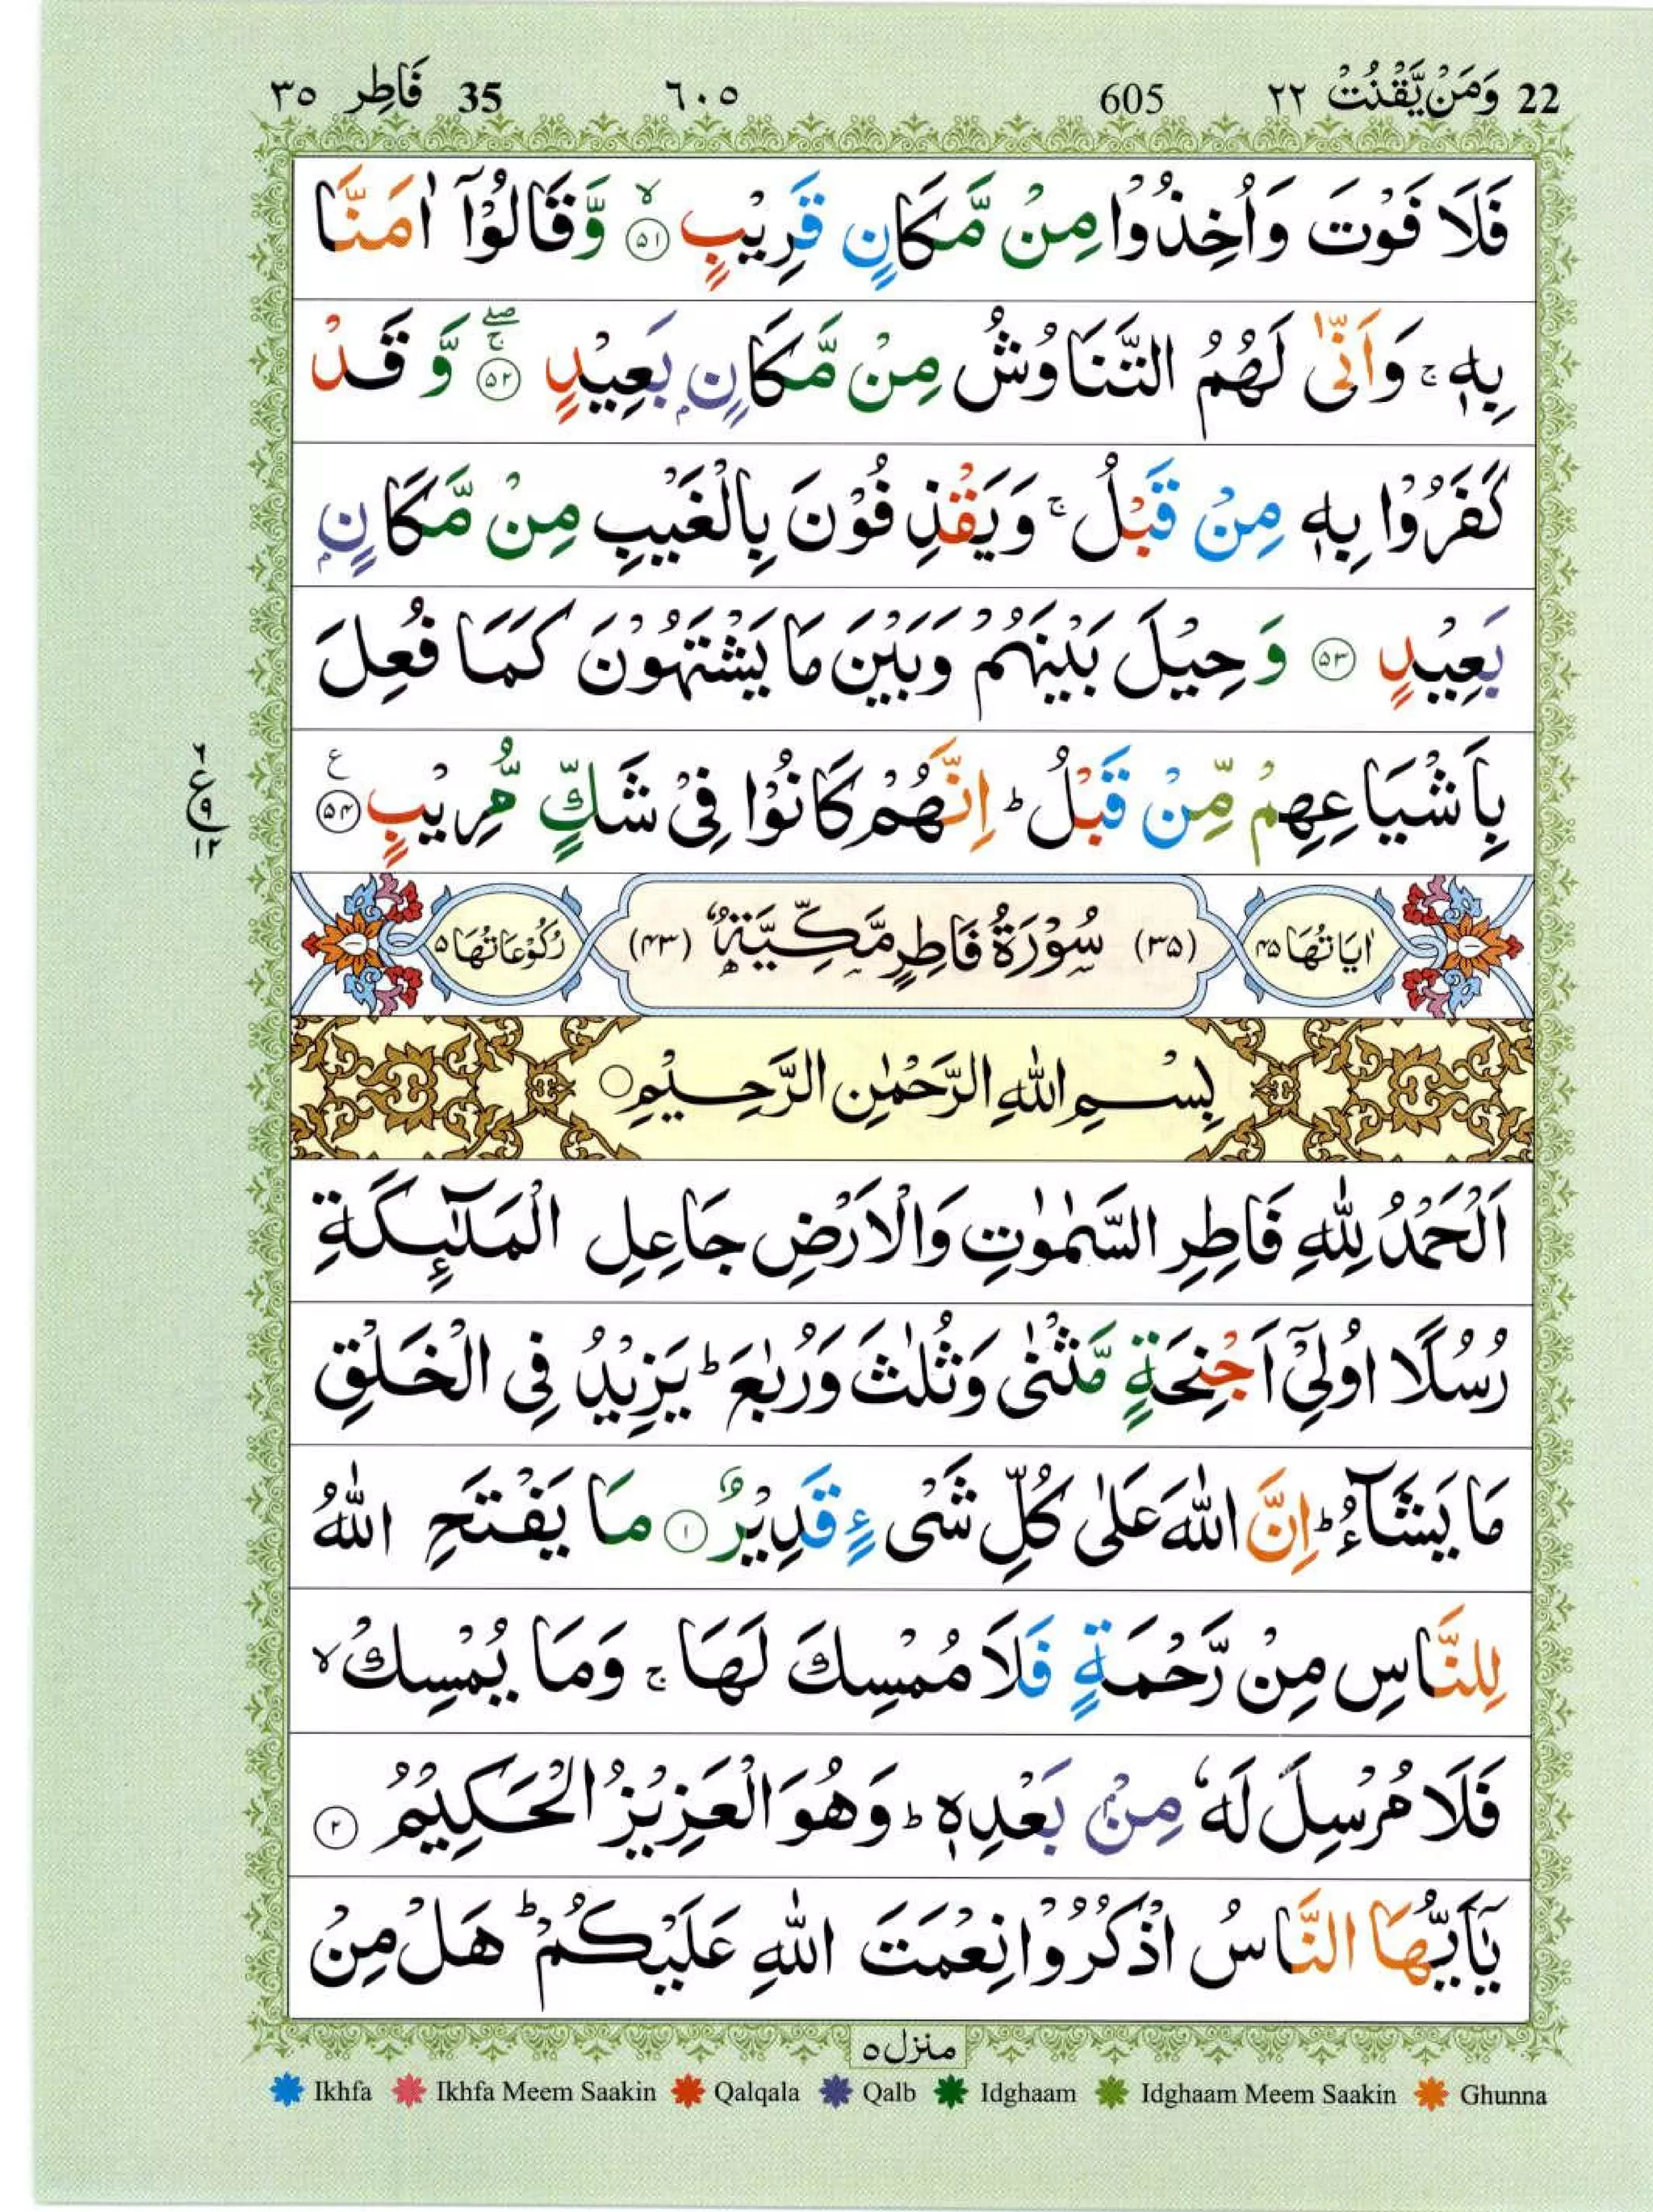 22 وَمَنْ يَّقْنُتْ ٢٢ 605 ٦٠٥ 35 فَاطِر ٣٥
فَلَا فَوْتَ وَاُخِذُوْا مِنْ مَّكَانٍ قَرِيْبٍ ۙ‏﴿۵۱﴾ وَّقَالُوْۤا اٰمَنَّا
بِهٖ ۚ وَاَنّٰى لَهُمُ التَّنَاوُشُ مِنْ مَّكَانٍۭ بَعِيْدٍ ۚۖ‏﴿۵۲﴾ وَّقَدْ
كَفَرُوْا بِهٖ مِنْ قَبْلُ ۚ وَيَقْذِفُوْنَ بِالْغَيْبِ مِنْ مَّكَانٍۭ
بَعِيْدٍ ﴿۵۳﴾ وَحِيْلَ بَيْنَهُمْ وَبَيْنَ مَا يَشْتَهُوْنَ كَمَا فُعِلَ
بِاَشْيَاعِهِمْ مِّنْ قَبْلُ ؕ اِنَّهُمْ كَانُوْا فِىْ شَكٍّ مُّرِيْبٍ ﴿۵۴﴾ ع
٦ ع ٩ ١٢
اٰيَاتُهَا ۴۵ (۳۵) سُوْرَةُ فَاطِرٍ مَّكِّيَّةٌ (۴۳) رُكُوْعَاتُهَا ۵
بِسْمِ اللهِ الرَّحْمٰنِ الرَّحِيْمِ
اَلْحَمْدُ لِلّٰهِ فَاطِرِ السَّمٰوٰتِ وَالْاَرْضِ جَاعِلِ الْمَلٰٓئِكَةِ
رُسُلًا اُولِىْۤ اَجْنِحَةٍ مَّثْنٰى وَثُلٰثَ وَرُبٰعَ ؕ يَزِيْدُ فِى الْخَلْقِ
مَا يَشَآءُ ؕ اِنَّ اللهَ عَلٰى كُلِّ شَىْءٍ قَدِيْرٌ ﴿۱﴾ مَا يَفْتَحِ اللهُ
لِلنَّاسِ مِنْ رَّحْمَةٍ فَلَا مُمْسِكَ لَهَا ۚ وَمَا يُمْسِكْ ۙ
فَلَا مُرْسِلَ لَهٗ مِنْۢ بَعْدِهٖ ؕ وَهُوَ الْعَزِيْزُ الْحَكِيْمُ ﴿۲﴾
يٰۤاَيُّهَا النَّاسُ اذْكُرُوْا نِعْمَتَ اللهِ عَلَيْكُمْ ؕ هَلْ مِنْ
منزل ۵
Ikhfa Ikhfa Meem Saakin Qalqala Qalb Idghaam Idghaam Meem Saakin Ghunna